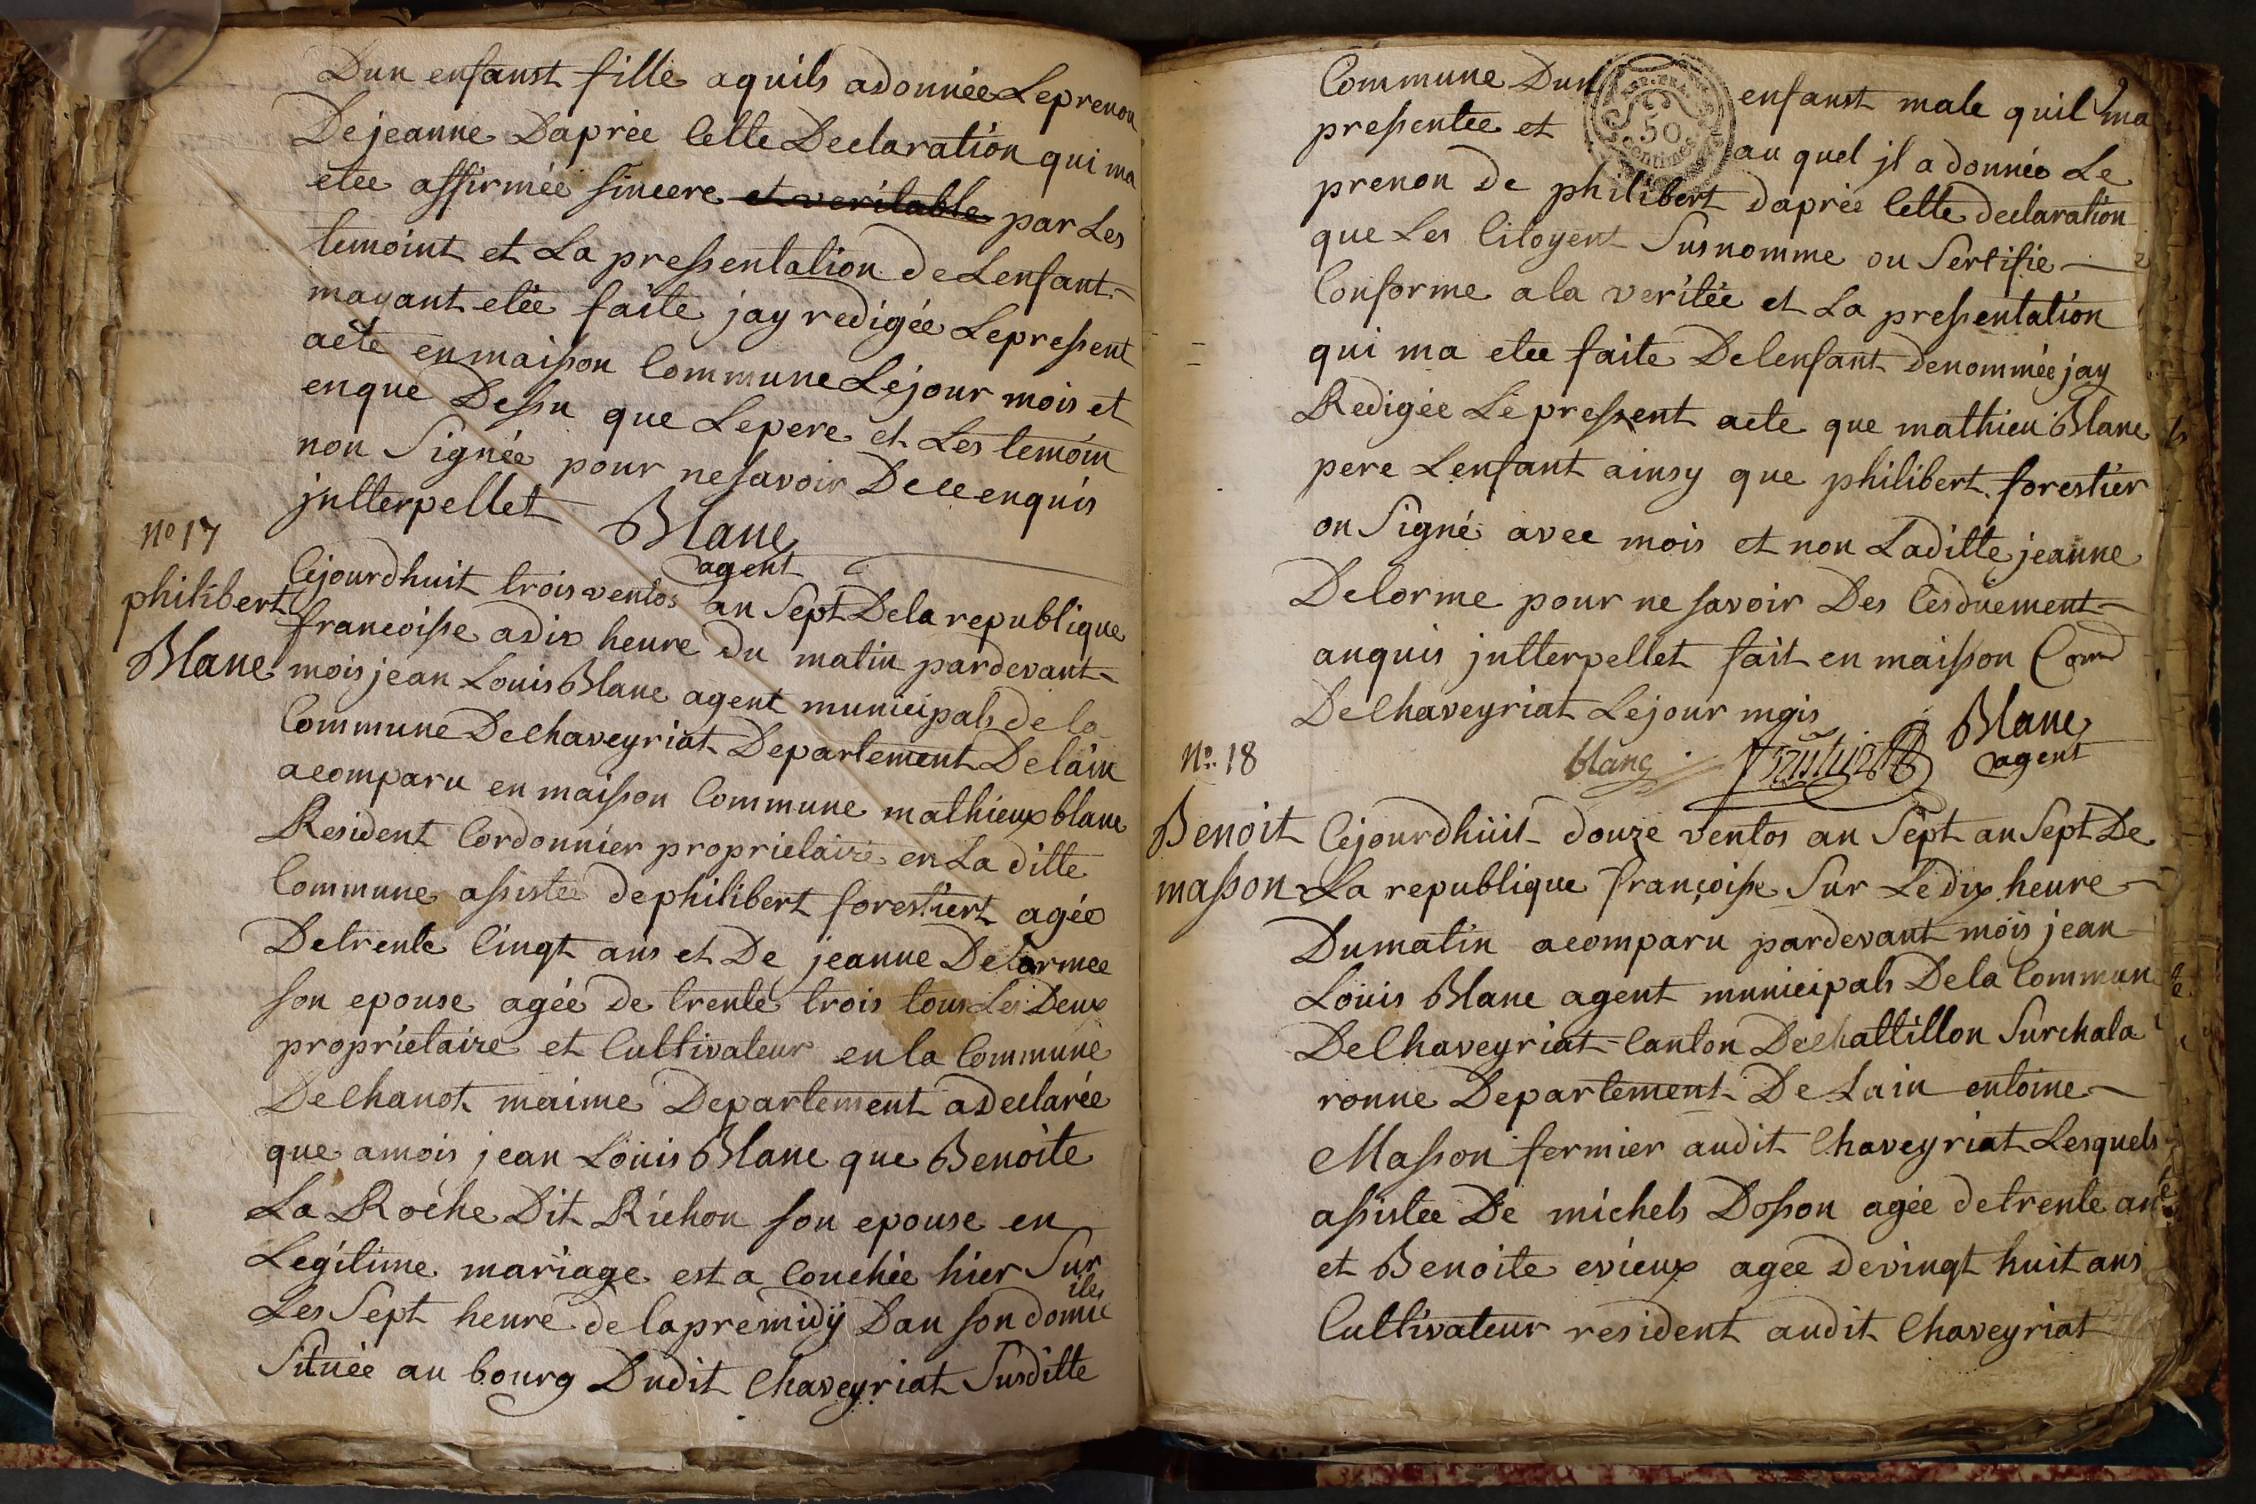 Dun enfanst fille aquils adonnée Leprenon
Dejeanne Daprée Cette Declaration qui ma
etee affirmée sincere et veritable par Les
temoint et La pressentation deLenfant
mayant etée faite jay redigée Lepressent
acte enmaisson Commune Lejour mois et
enque Dessu que Lepere et Les temoin
non Signée pour nesavoir Dece enquis
jntterpellet
Blanc
agent
no 17
philibert
Blanc
Cejourdhuit trois ventos an Sept Dela republique
francoisse adix heure Du matin pardevant
mois jean Louis Blanc agent municipals de la
Commune Dechaveyriat Departement Delain
acomparu en maisson Commune mathieux blanc
Resident Cordonnier proprietaire en La ditte
Commune assistée dephilibert forestiert agée
Detrente Cinqt ans et De jeanne Delormee
son epouse agée de trente trois tous Les Deux
proprietaire et Cultivateur en la Commune
Dechanot maime Departement adeclarée
que amois jean Louis Blanc que Benoite
La Roche Dit Richon son epouse en
Legitime mariage est a Couchée hier Sur
Les Sept heure de lapremidÿ Dan son domicile
Située au bourg Dudit Chaveyriat Susditte
Commune Dun enfanst male quil ma
pressentee et au quel jl a donnée Le
50
Centimes
prenon de philibert daprée Cette declaration
que Les Citoyent Susnomme ou Sertifie
Conforme ala veritée et La pressentation
qui ma etee faite Delenfant denommée jay
Redigée Le pressent acte que mathieu Blanc
pere Lenfant ainsy que philibert forestier
on Signé avec mois et non Laditte jeanne
Delorme pour ne savoir Des Cesduement
anquis jntterpellet fait en maisson Com
DeChaveyriat Lejour mois
blanc
Blanc
agent
No. 18
Benoit
masson
Cejourdhüit douze ventos an Sept an Sept De
La republique françoisse Sur Le dix heure
Dumatin acomparu pardevant mois jean
Louis Blanc agent municipals Dela Commune
DeChaveyriat Canton Dechattillon Surchala
ronne Departement De Lain entoine
Masson fermier audit Chaveyriat Lesquels
assistee De michels Dosson agée detrente an
et Benoite evieux agee Devingt huit ans
Cultivateur resident audit Chaveyriat